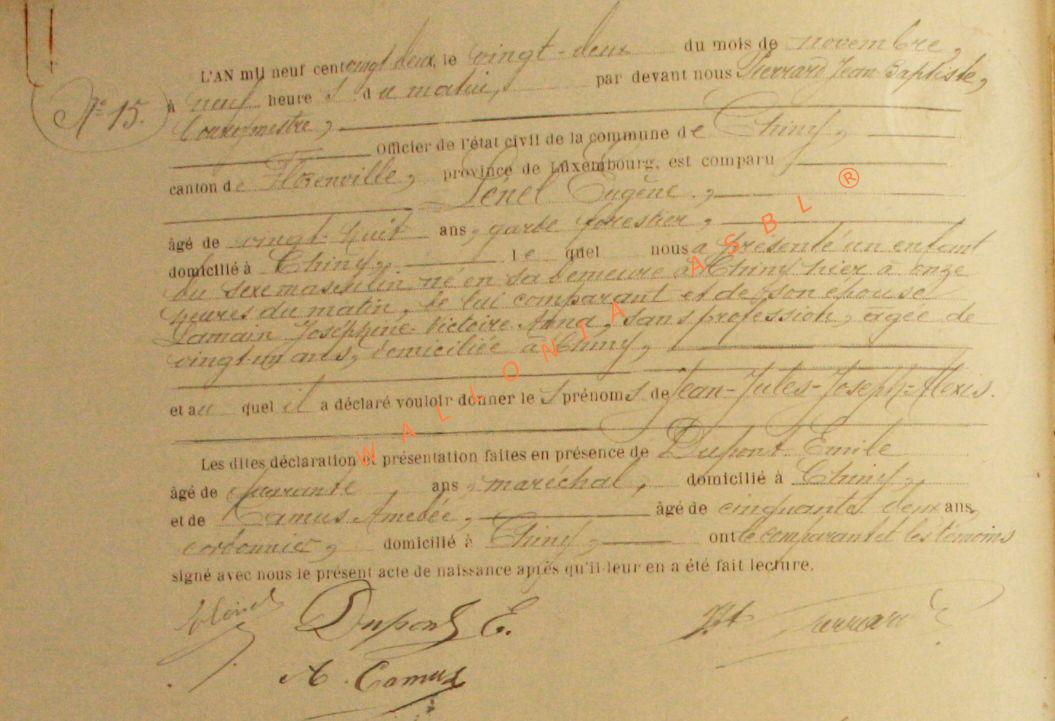 L'AN mil neuf cent vingt deux, le vingt-deux du mois de novembre,
N° 15.
à neuf heures du matin, par devant nous Pierrard Jean Baptiste,
bourgmestre,
Officier de l'état civil de la commune de Chiny,
canton de Florenville, province de Luxembourg, est comparu
Eugène,
âgé de vingt-huit ans, garde forestier,
domicilié à Chiny, lequel nous a présenté un enfant
du sexe masculin, né en sa demeure à Chiny hier à onze
heures du matin, de lui comparant et de son épouse
Lamain Joséphine-Victoire-Anna, sans profession, agée de
vingt-un ans, domiciliée à Chiny,
et auquel il a déclaré vouloir donner les prénoms de Jean-Jules-Joseph-Alexis.
Les dites déclaration et présentation faites en présence de Dupont Emile
âgé de quarante ans, maréchal, domicilié à Chiny,
et de Camus Amédée, âgé de cinquante deux ans,
cordonnier, domicilié à Chiny, ont le comparant et les témoins
signé avec nous le présent acte de naissance après qu'il leur en a été fait lecture.
Dupont E.
A. Camus
WALLONIA ASBL ®